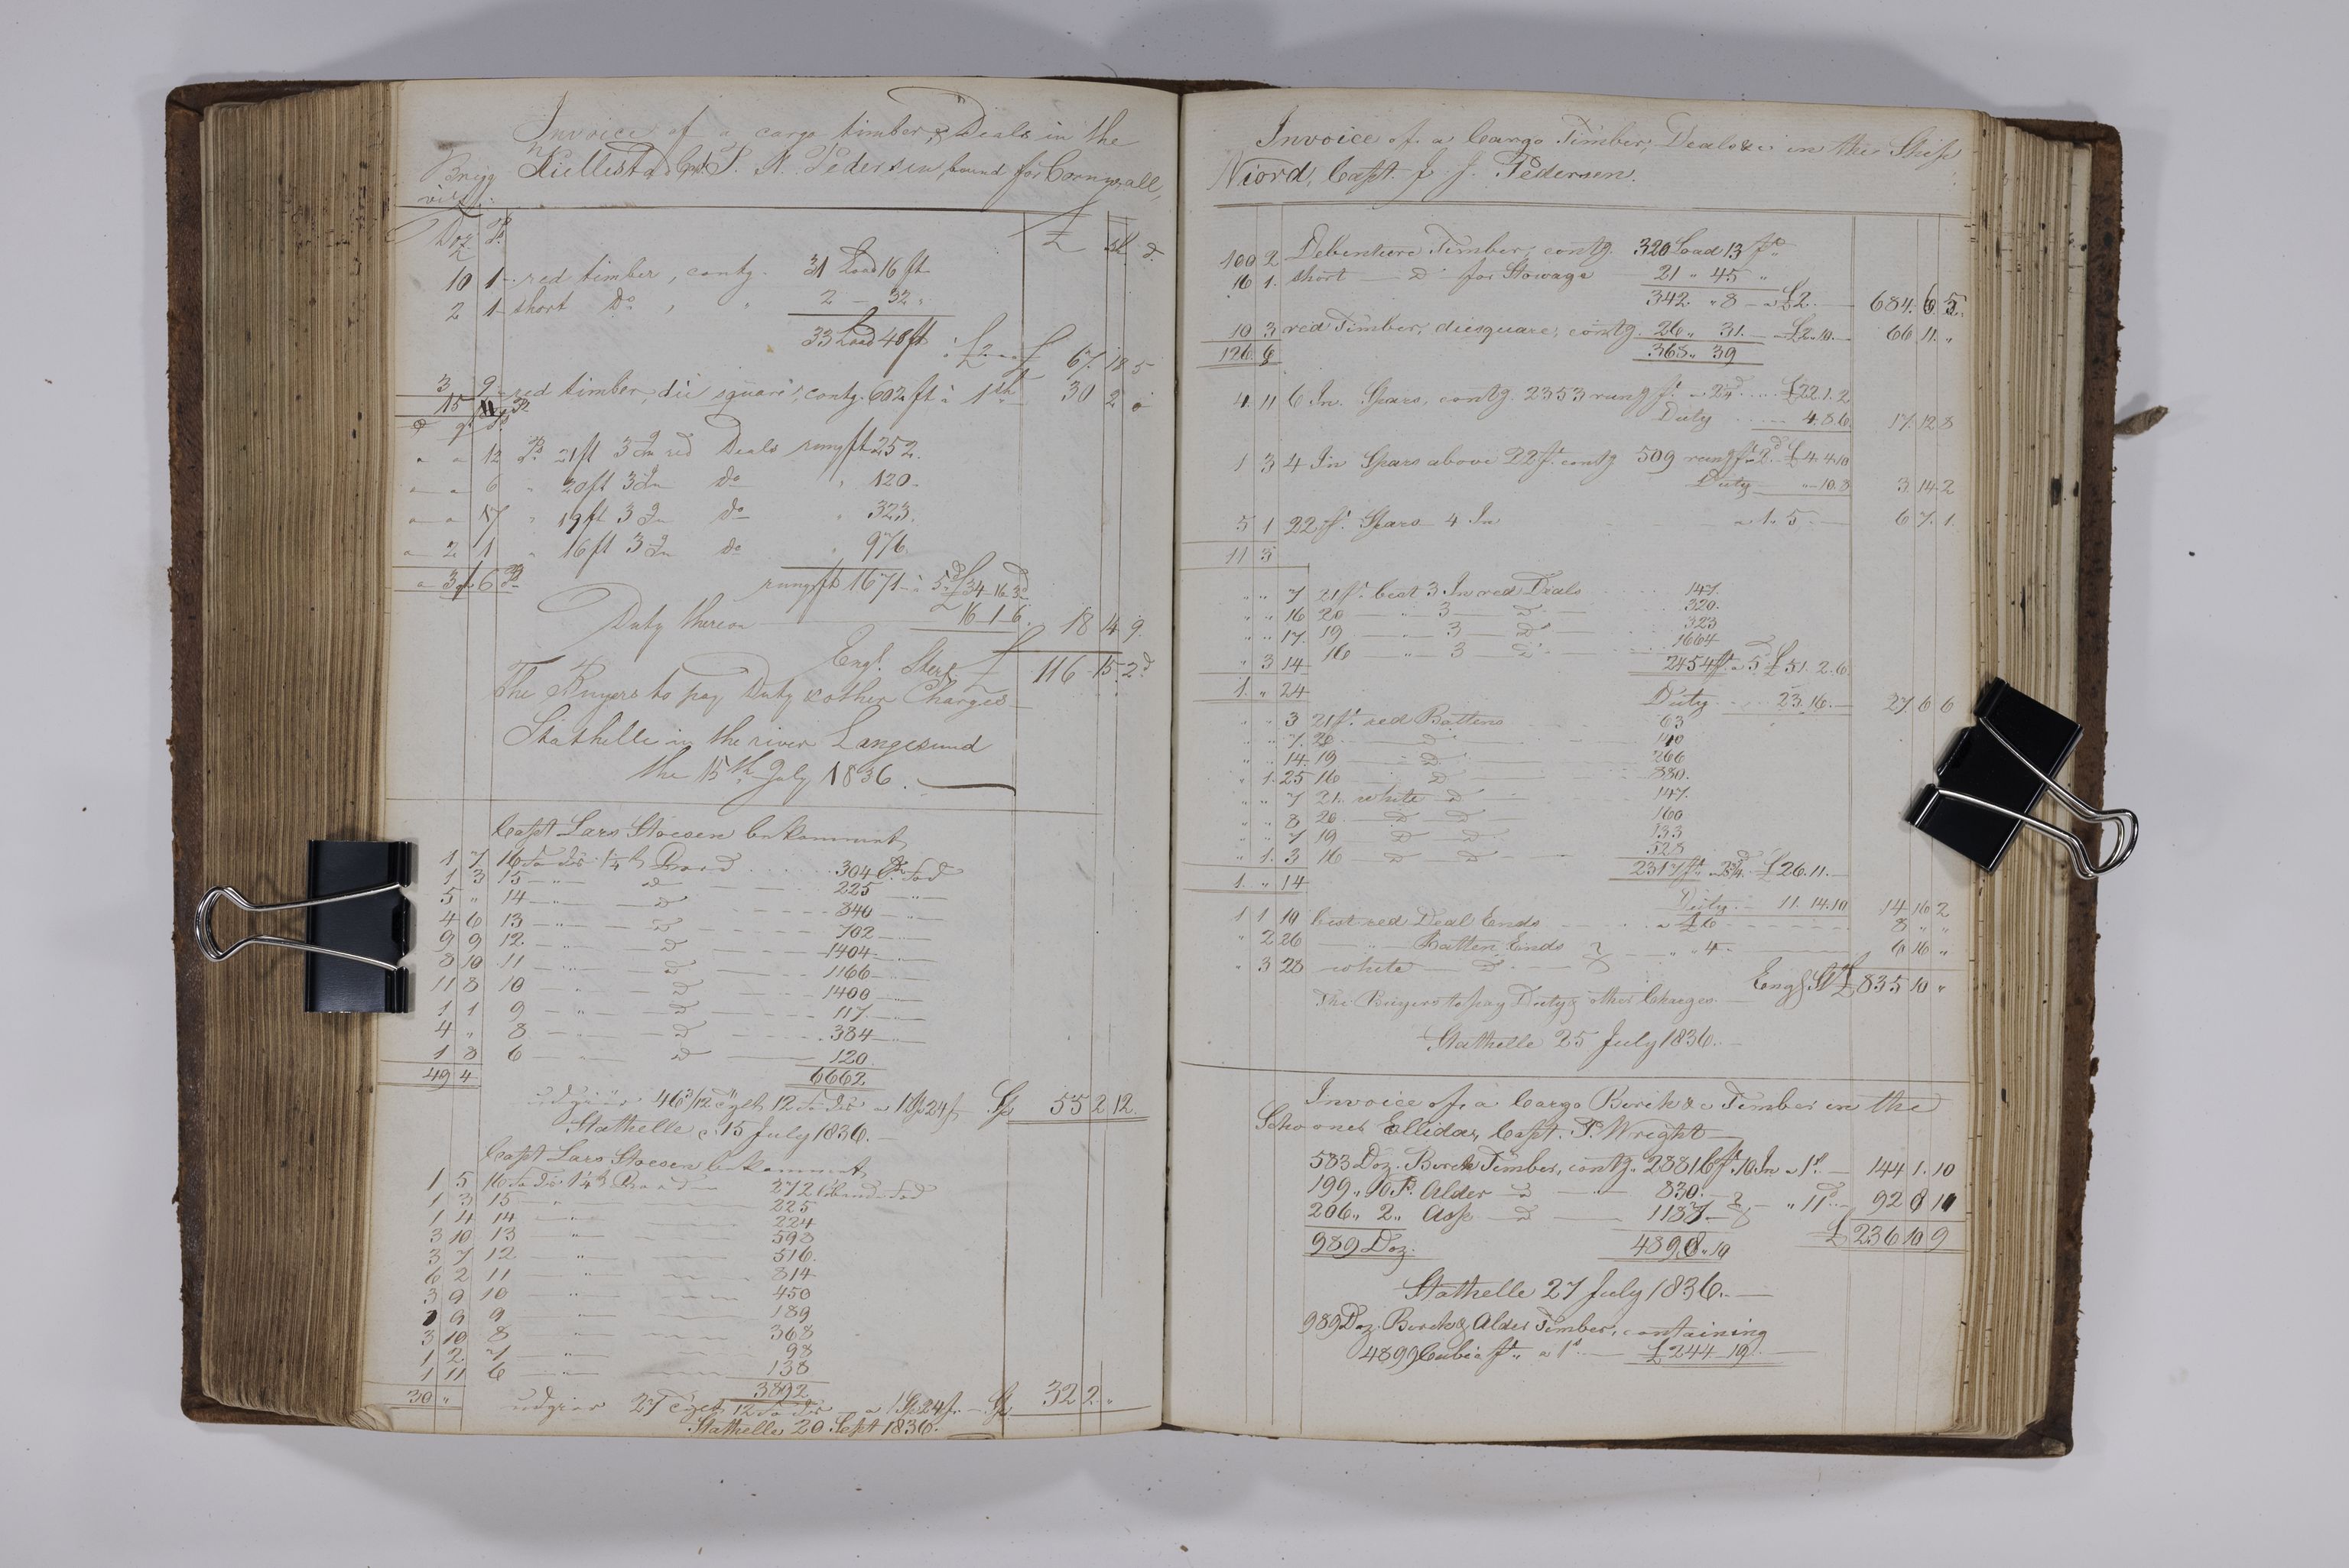 Invoice of a cargo timber & Deals in the
Brigg Kullestad Capt. P. N. Pedersen, bound for Cornwall,
viz:
Doz P. £ sh. d.
10 1 red timber, contg. 31 Load 16 ft
2 1 short Do , " 2 - 32 "
33 Load 48 ft à £2 - £ 67 18 5
3 9 red timber, die square, contg. 602 ft à 1 sh 30 2 0
15 11 P
a a 12 P. 21 ft 3 In red Deals rung ft 252.
a a 6 " 20 ft 3 In do " 120.
a a 17 " 19 ft 3 In do " 323.
a 2 1 " 16 ft 3 In do " 976
a 3 6 rung ft 1671 à 5d £34-16-3d
Duty thereon 16 1 6. 18 14 9.
Engl. Sterl. £ 116 15 2d
The Buyers to pay Duty & other Charges
Stathelle in the river Langesund
the 15th July 1836.
Capt Lars Stoesen bekommet,
1 7 16 Fods 1 1/4 Boord 304 Fod
1 3 15 - " - D 225 - " -
5 " 14 - " - D 840 - " -
4 6 13 - " - D 702 - " -
9 9 12 - " - D 1404 - " -
8 10 11 - " - D 1166 - " -
11 8 10 - " - D 1400 - " -
1 1 9 - " - D 117 - " -
4 " 8 - " - D 384 - " -
1 8 6 - " - D 120.
49 4 6662
udgiör 46 3/12 Tylt 12 Fods a 1 Sp 24 ß Sp 55 2 12
Stathelle 15 July 1836.
Capt Lars Stoesen bekommet,
1 5 16 Fods 1 1/4 Boord 272 löbende Fod
1 3 15 - " - 225
1 4 14 - " - 224
3 10 13 - " - 598
3 7 12 - " - 516.
6 2 11 - " - 814
3 9 10 - " - 450
9 9 - " - 189
3 10 8 - " - 368
1 2 7 - " - 98
1 11 6 - " - 138
30 " 3892
udgiör 27 Tylt 12 Fods a 1 Sp 24 ß Sp 32 2 "
Stathelle 20 Sept 1836.
Invoice of a Cargo Timber, Deals &c in the Ship
Niord, Capt. J. J. Pedersen.
100 2 Debenture Timber, contg. 320 Load 13 ft
16 1. short D for Stowage 21 " 45 "
342 " 8 a £2. 684. 6 5.
10 3 red Timber, diesquare, contg. 26 " 31. £2.10. 66 11. "
126. 6 368 " 39
4. 11 6 In. Spars, contg. 2353 rung ft a 2 1/4d £22.1.2
Duty 4.8.6. 17. 12 8
1 3 4 In Spars above 22 ft contg 509 rung ft a 2d £4.4.10
Duty " 10.8 3. 14. 2
5 1 22 ft Spars 4 In a 1. 5 6 7. 1.
11 3
" " 7 21 ft best 3 In red Deals 147.
" " 16 20 - " - 3 - D 320.
" " 17. 19 - " - 3 - D 323
" 3 14 16 - " - 3 - D 1664
1. " 24 2454 ft a 5d £51.2.6.
Duty 23.16. 27 6 6
" " 3 21 ft red Battens 63
" " 7. 20 D 140
" " 14. 19 D 266
" 1. 25 16 D 880.
" " 7 21. white D 147.
" " 8 20 D D 160
" " 7 19 D D 133
" 1. 3 16 D D 528
1. " 14 2317 ft a 2 3/4d £26.11.
Duty 11.14.10 14 16 2
1 1 10 best red Deal Ends a £6 8 " "
" 2 26 - " - Batten Ends } " 4 6 16 "
" 3 28 white D
Engl St £ 835 10 "
The Buyers to pay Duty & other Charges
Stathelle 25 July 1836.
Invoice of a Cargo Birch &c Timber in the
Schooner Ellida, Capt. P. Wright
583 Doz. Birch Timber, contg. 2881 Cft 10 In a 1s 144 1. 10
199 " 10 P. Alder D 830. } " 11d 92 8 11
206 " 2 " Asp D 1187
989 Doz. 4898 " 10 £ 236 10 9
Stathelle 27 July 1836.
989 Doz. Birch & Alder Timber, containing
4899 Cubic ft a 1s £244 19